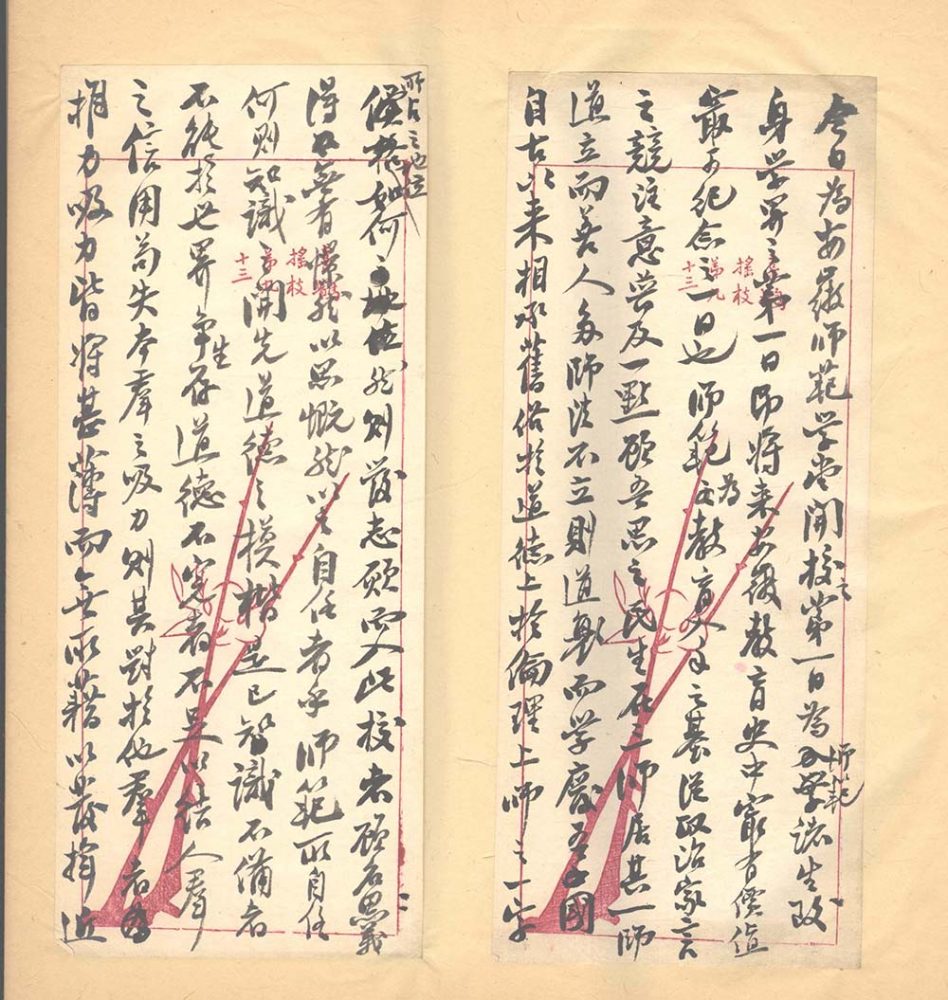 今日為安徽師範學堂開校之第一日為師範學諸生致
身学界之第一日即將来安徽教育史中最有價值
最可紀念之一日也師範為教育之基政治家言
之競注意一點願吾思之民生在三師居其一師
道立而善人多師法不立則道斁而学廢吾國
自古以来相承舊俗於道德上於倫理上師之一字
搖枝
第九
十三
所占之地位
價格如何地位然則發志願而入此校者顧名思義
得不無有憬然以思慨然以之自任者乎師範所自任
何則知識之開先道德之模楷是已智識不備者
不能於世界爭生存道德不完者不足以結人羣
之信用苟失本羣之吸力則其對於他羣者
力吸力皆將甚薄而無所藉以發揮近
搖枝
第九
十三